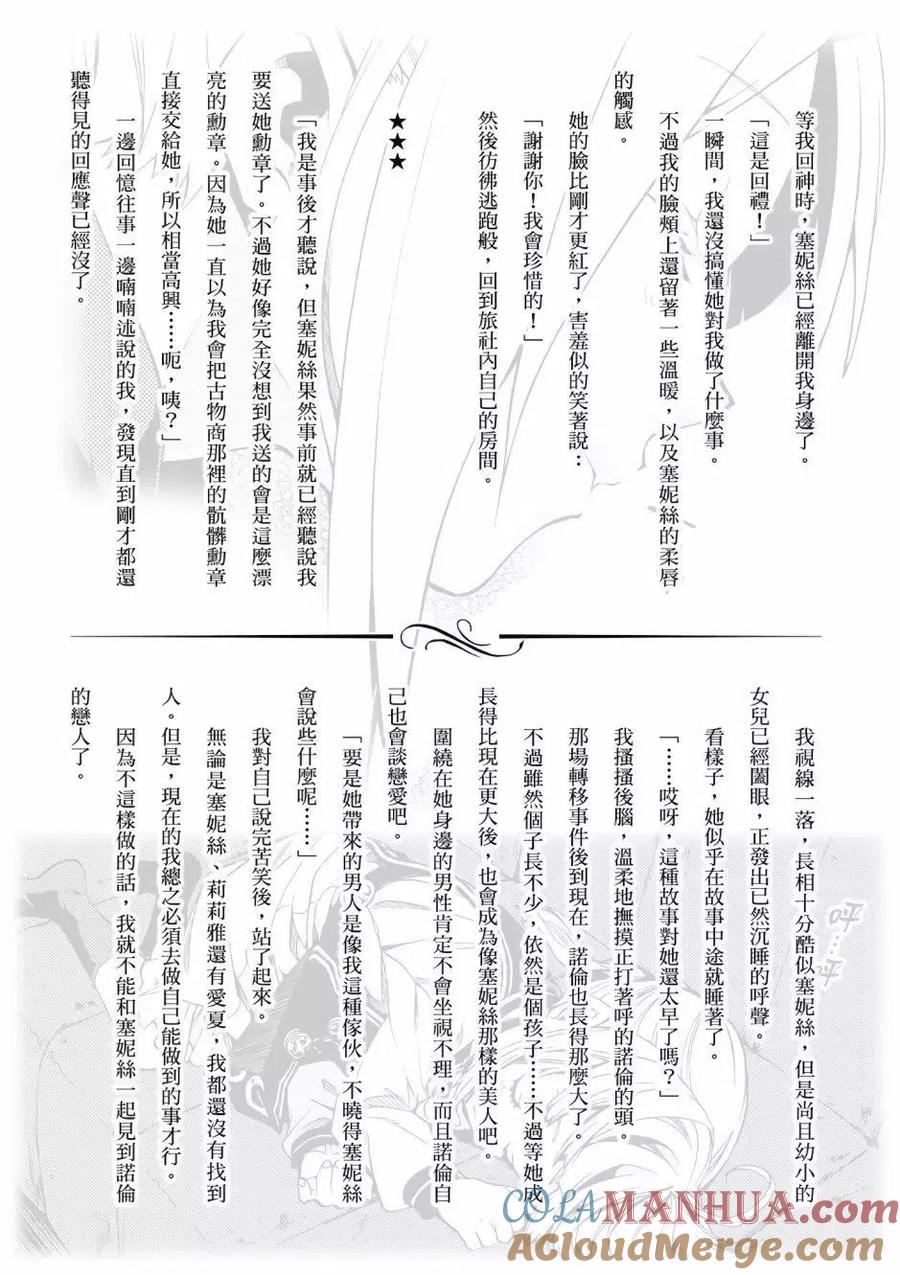 等我回神時，塞妮絲已經離開我身邊了。
「這是回禮！」
一瞬間，我還沒搞懂她對我做了什麼事。
不過我的臉頰上還留著一些溫暖，以及塞妮絲的柔唇
的觸感。
她的臉比剛才更紅了，害羞似的笑著說：
「謝謝你！我會珍惜的！」
然後彷彿逃跑般，回到旅社內自己的房間。
★★★
「我是事後才聽說，但塞妮絲果然事前就已經聽說我
要送她勳章了。不過她好像完全沒想到我送的會是這麼漂
亮的勳章。因為她一直以為我會把古物商那裡的骯髒勳章
直接交給她，所以相當高興……呃，咦？」
一邊回憶往事一邊喃喃述說的我，發現直到剛才都還
聽得見的回應聲已經沒了。
我視線一落，長相十分酷似塞妮絲，但是尚且幼小的
女兒已經闔眼，正發出已然沉睡的呼聲。
看樣子，她似乎在故事中途就睡著了。
「……哎呀，這種故事對她還太早了嗎？」
我搔搔後腦，溫柔地撫摸正打著呼的諾倫的頭。
那場轉移事件後到現在，諾倫也長得那麼大了。
不過雖然個子長不少，依然是個孩子……不過等她成
長得比現在更大後，也會成為像塞妮絲那樣的美人吧。
圍繞在她身邊的男性肯定不會坐視不理，而且諾倫自
己也會談戀愛吧。
「要是她帶來的男人是像我這種傢伙，不曉得塞妮絲
會說些什麼呢……」
我對自己說完苦笑後，站了起來。
無論是塞妮絲、莉莉雅還有愛夏，我都還沒有找到
人。但是，現在的我總之必須去做自己能做到的事才行。
因為不這樣做的話，我就不能和塞妮絲一起見到諾倫
的戀人了。
呼…呼
COLAMANHUA.com
ACloudMerge.com